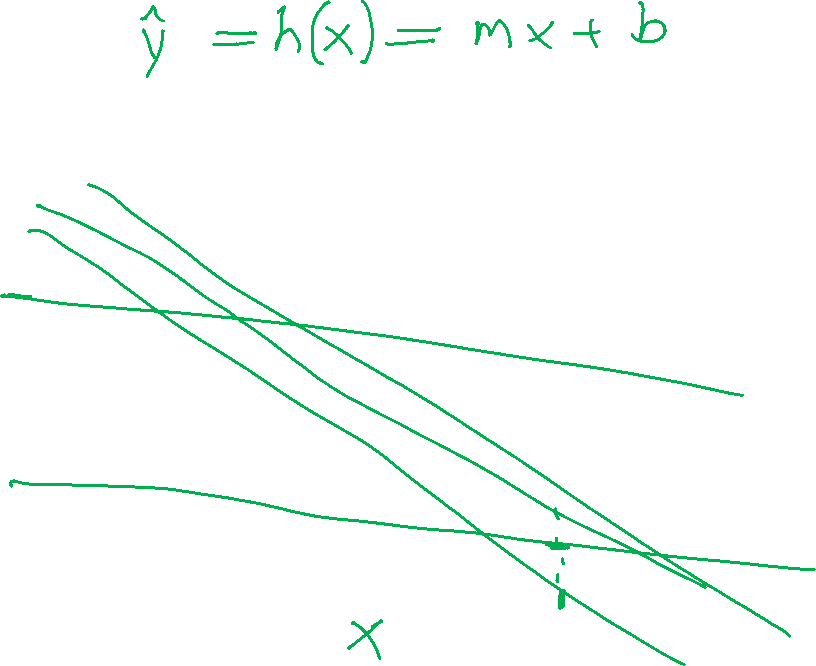 ŷ = h(x) = mx + b
x